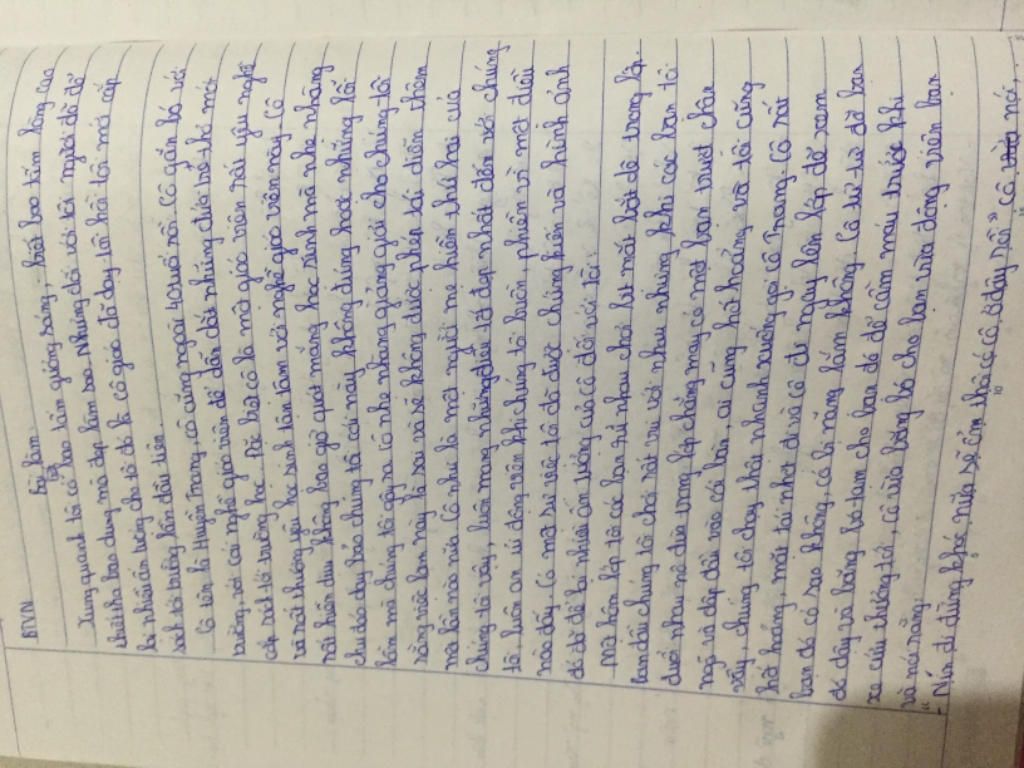 BTVN
Bài làm
Xung quanh tôi có bao tấm gương sáng, biết bao tấm lòng cao
thứ tha bao dung mà đẹp làm sao. Nhưng đối với tôi người đã để
lại nhiều ấn tượng cho tôi đó là cô giáo đã dạy tôi hồi tôi mới cắp
sách tới trường lần đầu tiên.
Cô tên là Huyền Trang, cô cũng ngoài 40 tuổi rồi. Cô gắn bó với
trường, với cái nghề giáo viên để dẫn dắt những đứa trẻ thơ mới
cắp sách tới trường học. Đặc biệt cô là một giáo viên rất yêu nghề
và rất thương yêu học sinh tận tâm với nghề giáo viên này. Cô
rất hiền dịu không bao giờ quát mắng học sinh mà nhẹ nhàng
chu đáo dạy bảo chúng tôi cái này không đúng hoặc những lỗi
lầm mà chúng tôi gây ra cô nhẹ nhàng giảng giải cho chúng tôi
rằng việc làm này là sai và sẽ không được phép tái diễn thêm
một lần nào nữa. Cô như là một người mẹ hiền thứ hai của
chúng tôi vậy, luôn mang những điều tốt đẹp nhất đến với chúng
tôi, luôn an ủi động viên khi chúng tôi buồn, phiền vì một điều
nào đấy. Có một sự việc tôi đã được chứng kiến và hình ảnh
đó đã để lại nhiều ấn tượng của cô đối với tôi:
Một hôm lớp tôi các bạn rủ nhau chơi bịt mắt bắt dê trong lớp.
ban đầu chúng tôi chơi rất vui với nhau nhưng khi các bạn tôi
đuổi nhau nô đùa trong lớp chẳng may có một bạn trượt chân
ngã và đập đầu vào cái bàn, ai cũng hốt hoảng và tôi cũng
vậy, chúng tôi chạy thật nhanh xuống gọi cô Trang. Cô rất
hốt hoảng, mặt tái nhợt đi và cô đi ngay lên lớp để xem
bạn đó có sao không, cô lo lắng lắm không. Cô từ từ đỡ bạn
đó dậy và băng bó tạm cho bạn đó để cầm máu trước khi
xe cứu thương tới, cô vừa băng bó cho bạn vừa động viên bạn
và nói rằng:
- Nín đi đừng khóc nữa sẽ ổn thôi có cô ở đây rồi" Cô nói,